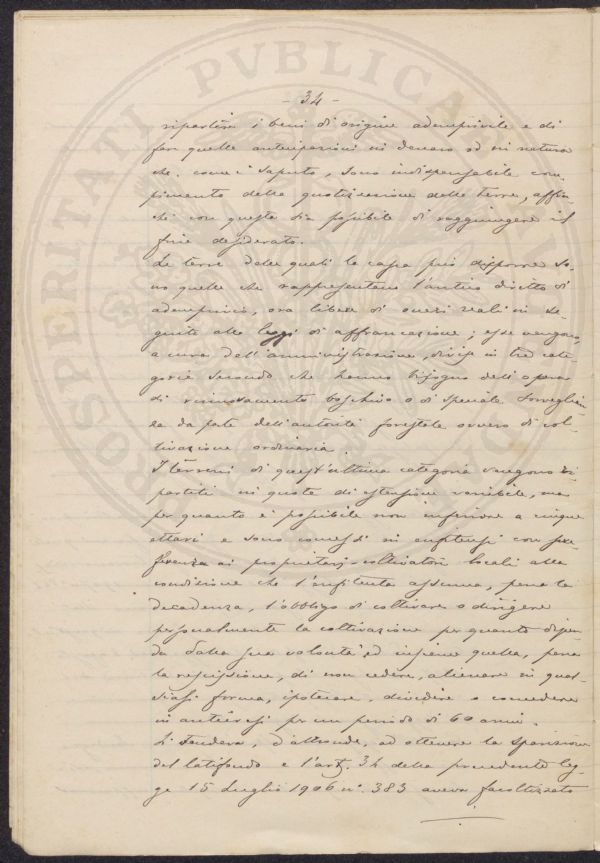 - 34 -
ripartire i beni di origine ademprivile e di
far quelle anticipazioni in denaro od in natura
che, com'è saputo, sono indispensabile com-
pimento della quotizzazione delle terre, affin-
chè con queste sia possibile di raggiungere il
fine desiderato.
Le terre delle quali la cassa può disporre so-
no quelle che rappresentano l'antico diritto di
ademprivio, ora libere di oneri reali in se-
guito alle leggi di affrancazione; esse vengono,
a cura dell'amministrazione, divise in tre cate-
gorie secondo che hanno bisogno dell'opera
di rinsaldamento boschivo o di speciale sorveglian-
za da parte dell'autorità forestale ovvero di col-
tivazione ordinaria.
I terreni di quest'ultima categoria vengono ri-
partiti in quote di estensione variabile, ma
per quanto è possibile non inferiore a cinque
ettari e sono concessi in enfiteusi con pre-
ferenza ai proprietari-coltivatori locali alla
condizione che l'enfiteuta assuma, pena la
decadenza, l'obbligo di coltivare o dirigere
personalmente la coltivazione per quanto dipen-
da dalla sua volontà ed insieme quella, pena
la rescissione, di non cedere, alienare in qual-
siasi forma, ipotecare, dividere o concedere
in anticresi per un periodo di 60 anni.
Si tendeva, d'altronde, ad ottenere la sparizione
del latifondo e l'art. 34 della precedente leg-
ge 15 Luglio 1906 n°. 383 aveva facoltizzato
PROSPERITATI PVBLICAE